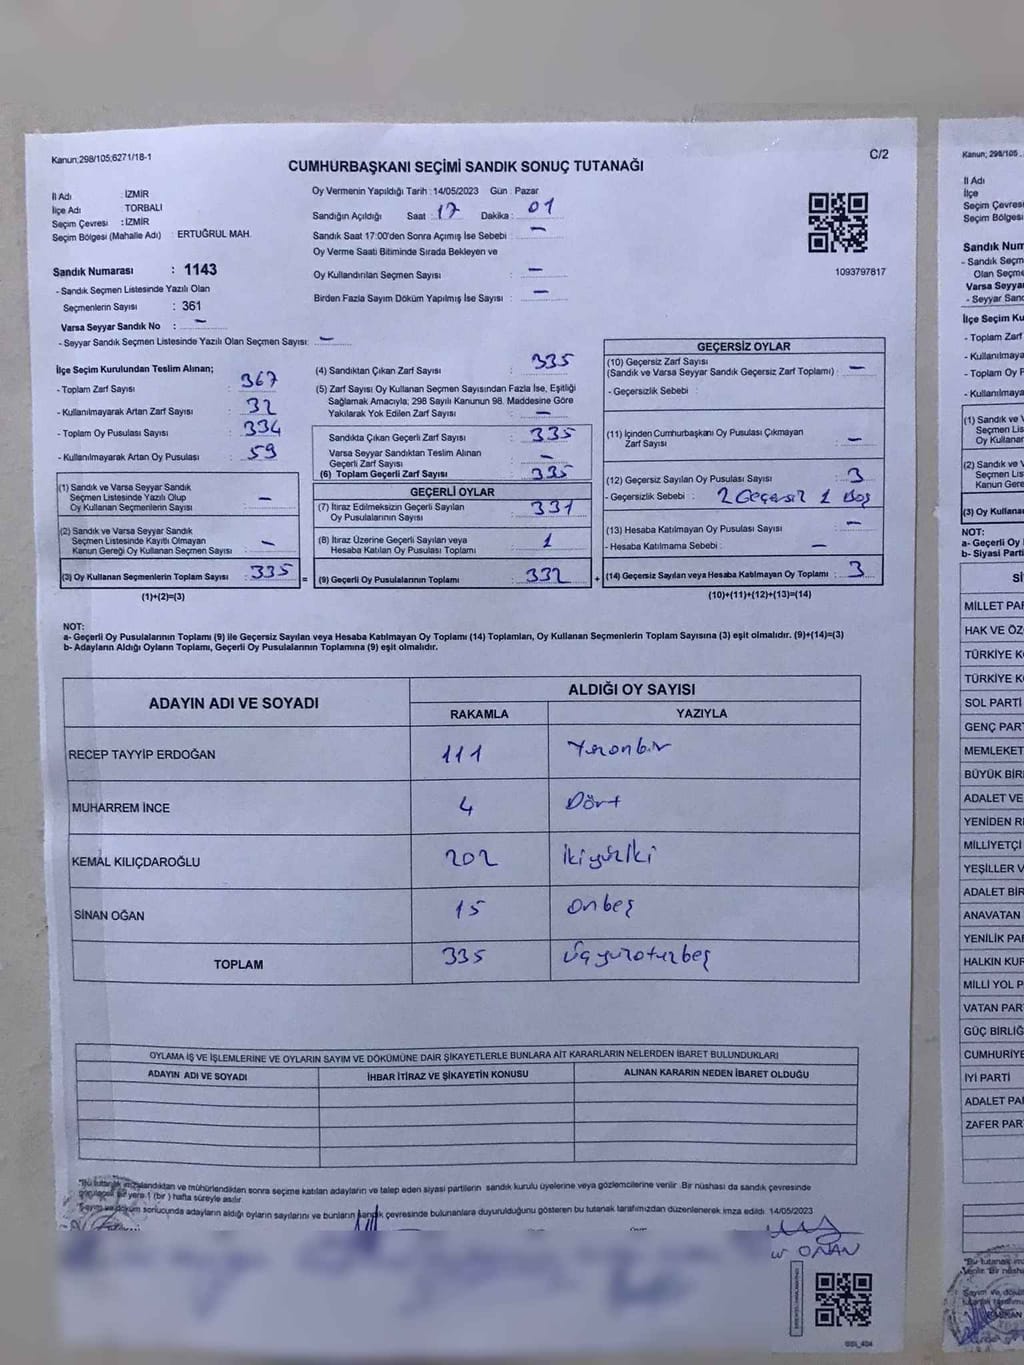 Kanun;298/105;6271/18-1
C/2
CUMHURBAŞKANI SEÇİMİ SANDIK SONUÇ TUTANAĞI
İl Adı : İZMİR
İlçe Adı : TORBALI
Seçim Çevresi : İZMİR
Seçim Bölgesi (Mahalle Adı) : ERTUĞRUL MAH.
Sandık Numarası : 1143
- Sandık Seçmen Listesinde Yazılı Olan
Seçmenlerin Sayısı : 361
Varsa Seyyar Sandık No : -
- Seyyar Sandık Seçmen Listesinde Yazılı Olan Seçmen Sayısı: -
Oy Vermenin Yapıldığı Tarih : 14/05/2023 Gün : Pazar
Sandığın Açıldığı Saat : 17 Dakika : 01
Sandık Saat 17:00'den Sonra Açımış İse Sebebi : -
Oy Verme Saati Bitiminde Sırada Bekleyen ve
Oy Kullandırılan Seçmen Sayısı : -
Birden Fazla Sayım Döküm Yapılmış İse Sayısı : -
1093797817
İlçe Seçim Kurulundan Teslim Alınan;
- Toplam Zarf Sayısı : 367
- Kullanılmayarak Artan Zarf Sayısı : 32
- Toplam Oy Pusulası Sayısı : 334
- Kullanılmayarak Artan Oy Pusulası : 59
(1) Sandık ve Varsa Seyyar Sandık
Seçmen Listesinde Yazılı Olup
Oy Kullanan Seçmenlerin Sayısı : -
(2) Sandık ve Varsa Seyyar Sandık
Seçmen Listesinde Kayıtlı Olmayan
Kanun Gereği Oy Kullanan Seçmen Sayısı : -
(3) Oy Kullanan Seçmenlerin Toplam Sayısı : 335 =
(1)+(2)=(3)
(4) Sandıktan Çıkan Zarf Sayısı : 335
(5) Zarf Sayısı Oy Kullanan Seçmen Sayısından Fazla İse, Eşitliği
Sağlamak Amacıyla; 298 Sayılı Kanunun 98. Maddesine Göre
Yakılarak Yok Edilen Zarf Sayısı : -
Sandıkta Çıkan Geçerli Zarf Sayısı : 335
Varsa Seyyar Sandıktan Teslim Alınan
Geçerli Zarf Sayısı : -
(6) Toplam Geçerli Zarf Sayısı : 335
GEÇERLİ OYLAR
(7) İtiraz Edilmeksizin Geçerli Sayılan
Oy Pusulalarının Sayısı : 331
(8) İtiraz Üzerine Geçerli Sayılan veya
Hesaba Katılan Oy Pusulası Toplamı : 1
(9) Geçerli Oy Pusulalarının Toplamı : 332 +
GEÇERSİZ OYLAR
(10) Geçersiz Zarf Sayısı
(Sandık ve Varsa Seyyar Sandık Geçersiz Zarf Toplamı) : -
- Geçersizlik Sebebi :
(11) İçinden Cumhurbaşkanı Oy Pusulası Çıkmayan
Zarf Sayısı : -
(12) Geçersiz Sayılan Oy Pusulası Sayısı : 3
- Geçersizlik Sebebi : 2 Geçersiz 1 Boş
(13) Hesaba Katılmayan Oy Pusulası Sayısı : -
- Hesaba Katılmama Sebebi : -
(14) Geçersiz Sayılan veya Hesaba Katılmayan Oy Toplamı : 3
(10)+(11)+(12)+(13)=(14)
NOT:
a- Geçerli Oy Pusulalarının Toplamı (9) ile Geçersiz Sayılan veya Hesaba Katılmayan Oy Toplamı (14) Toplamları, Oy Kullanan Seçmenlerin Toplam Sayısına (3) eşit olmalıdır. (9)+(14)=(3)
b- Adayların Aldığı Oyların Toplamı, Geçerli Oy Pusulalarının Toplamına (9) eşit olmalıdır.
ADAYIN ADI VE SOYADI
ALDIĞI OY SAYISI
RAKAMLA YAZIYLA
RECEP TAYYİP ERDOĞAN 111 Yüzonbir
MUHARREM İNCE 4 Dört
KEMAL KILIÇDAROĞLU 202 İkiyüziki
SİNAN OĞAN 15 Onbeş
TOPLAM 335 Üçyüzotuzbeş
OYLAMA İŞ VE İŞLEMLERİNE VE OYLARIN SAYIM VE DÖKÜMÜNE DAİR ŞİKAYETLERLE BUNLARA AİT KARARLARIN NELERDEN İBARET BULUNDUKLARI
ADAYIN ADI VE SOYADI İHBAR İTİRAZ VE ŞİKAYETİN KONUSU ALINAN KARARIN NEDEN İBARET OLDUĞU
"Bu tutanak imzalandıktan ve mühürlendikten sonra seçime katılan adayların ve talep eden siyasi partilerin sandık kurulu üyelerine veya gözlemcilerine verilir. Bir nüshası da sandık çevresinde
görülecek bir yere 1 (bir ) hafta süreyle asılır.
Sayım ve döküm sonucunda adayların aldığı oyların sayılarını ve bunların sandık çevresinde bulunanlara duyurulduğunu gösteren bu tutanak tarafımızdan düzenlenerek imza edildi. 14/05/2023
ONAN
Kanun; 298/105
İl Adı
İlçe
Seçim Çevresi
Seçim Bölgesi
Sandık Num
- Sandık Seçm
Olan Seçme
Varsa Seyya
- Seyyar Sand
İlçe Seçim Ku
- Toplam Zarf
- Kullanılmaya
- Toplam Oy P
- Kullanılmaya
(1) Sandık ve
Seçmen Lis
Oy Kullanan
(2) Sandık ve V
Seçmen List
Kanun Gere
(3) Oy Kullana
NOT:
a- Geçerli Oy
b- Siyasi Parti
Sİ
MİLLET PAR
HAK VE ÖZ
TÜRKİYE K
TÜRKİYE K
SOL PARTİ
GENÇ PAR
MEMLEKET
BÜYÜK BİR
ADALET VE
YENİDEN R
MİLLİYETÇİ
YEŞİLLER V
ADALET BİR
ANAVATAN
YENİLİK PA
HALKIN KUR
MİLLİ YOL P
VATAN PAR
GÜÇ BİRLİĞ
CUMHURİYE
İYİ PARTİ
ADALET PA
ZAFER PAR